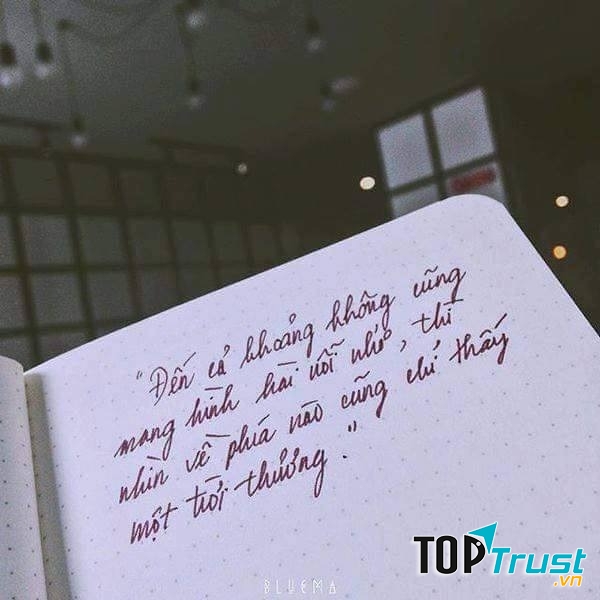 "Đến cả khoảng không cũng
mang hình hài nỗi nhớ, thì
nhìn về phía nào cũng chỉ thấy
một trời thương."
TOPTrust
.vn
BLUEMA